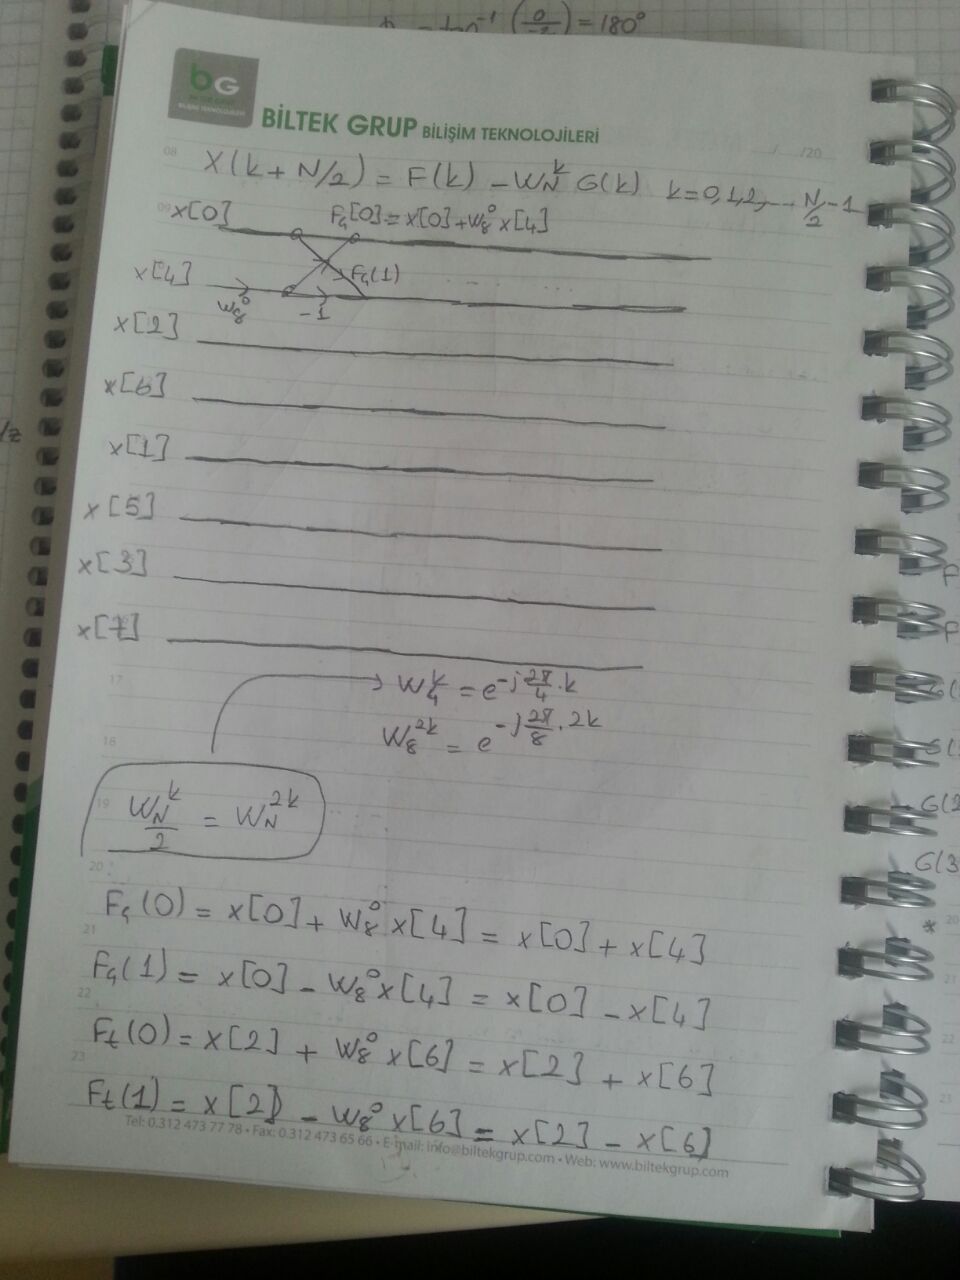 = tan⁻¹ (0/-2) = 180°
bG
BİLİŞİM TEKNOLOJİLERİ
BİLTEK GRUP BİLİŞİM TEKNOLOJİLERİ
/20
08
X(k + N/2) = F(k) - W_N^k G(k) k = 0,1,2,... N/2 - 1
09
x[0] F₄[0] = x[0] + W₈⁰ x[4]
x[4] F₄(1)
W₈⁰ -1
x[2]
x[6]
x[1]
x[5]
x[3]
x[7]
17
W₄^k = e^(-j 2π/4 . k)
18
W₈^2k = e^(-j 2π/8 . 2k)
19
W_(N/2)^k = W_N^2k
20
F₄(0) = x[0] + W₈⁰ x[4] = x[0] + x[4]
21
F₄(1) = x[0] - W₈⁰ x[4] = x[0] - x[4]
22
Ft(0) = x[2] + W₈⁰ x[6] = x[2] + x[6]
23
Ft(1) = x[2] - W₈⁰ x[6] = x[2] - x[6]
Tel: 0.312 473 77 78 • Fax: 0.312 473 65 66 • E-mail: info@biltekgrup.com • Web: www.biltekgrup.com
G(2
G(3
*
20
21
22
23